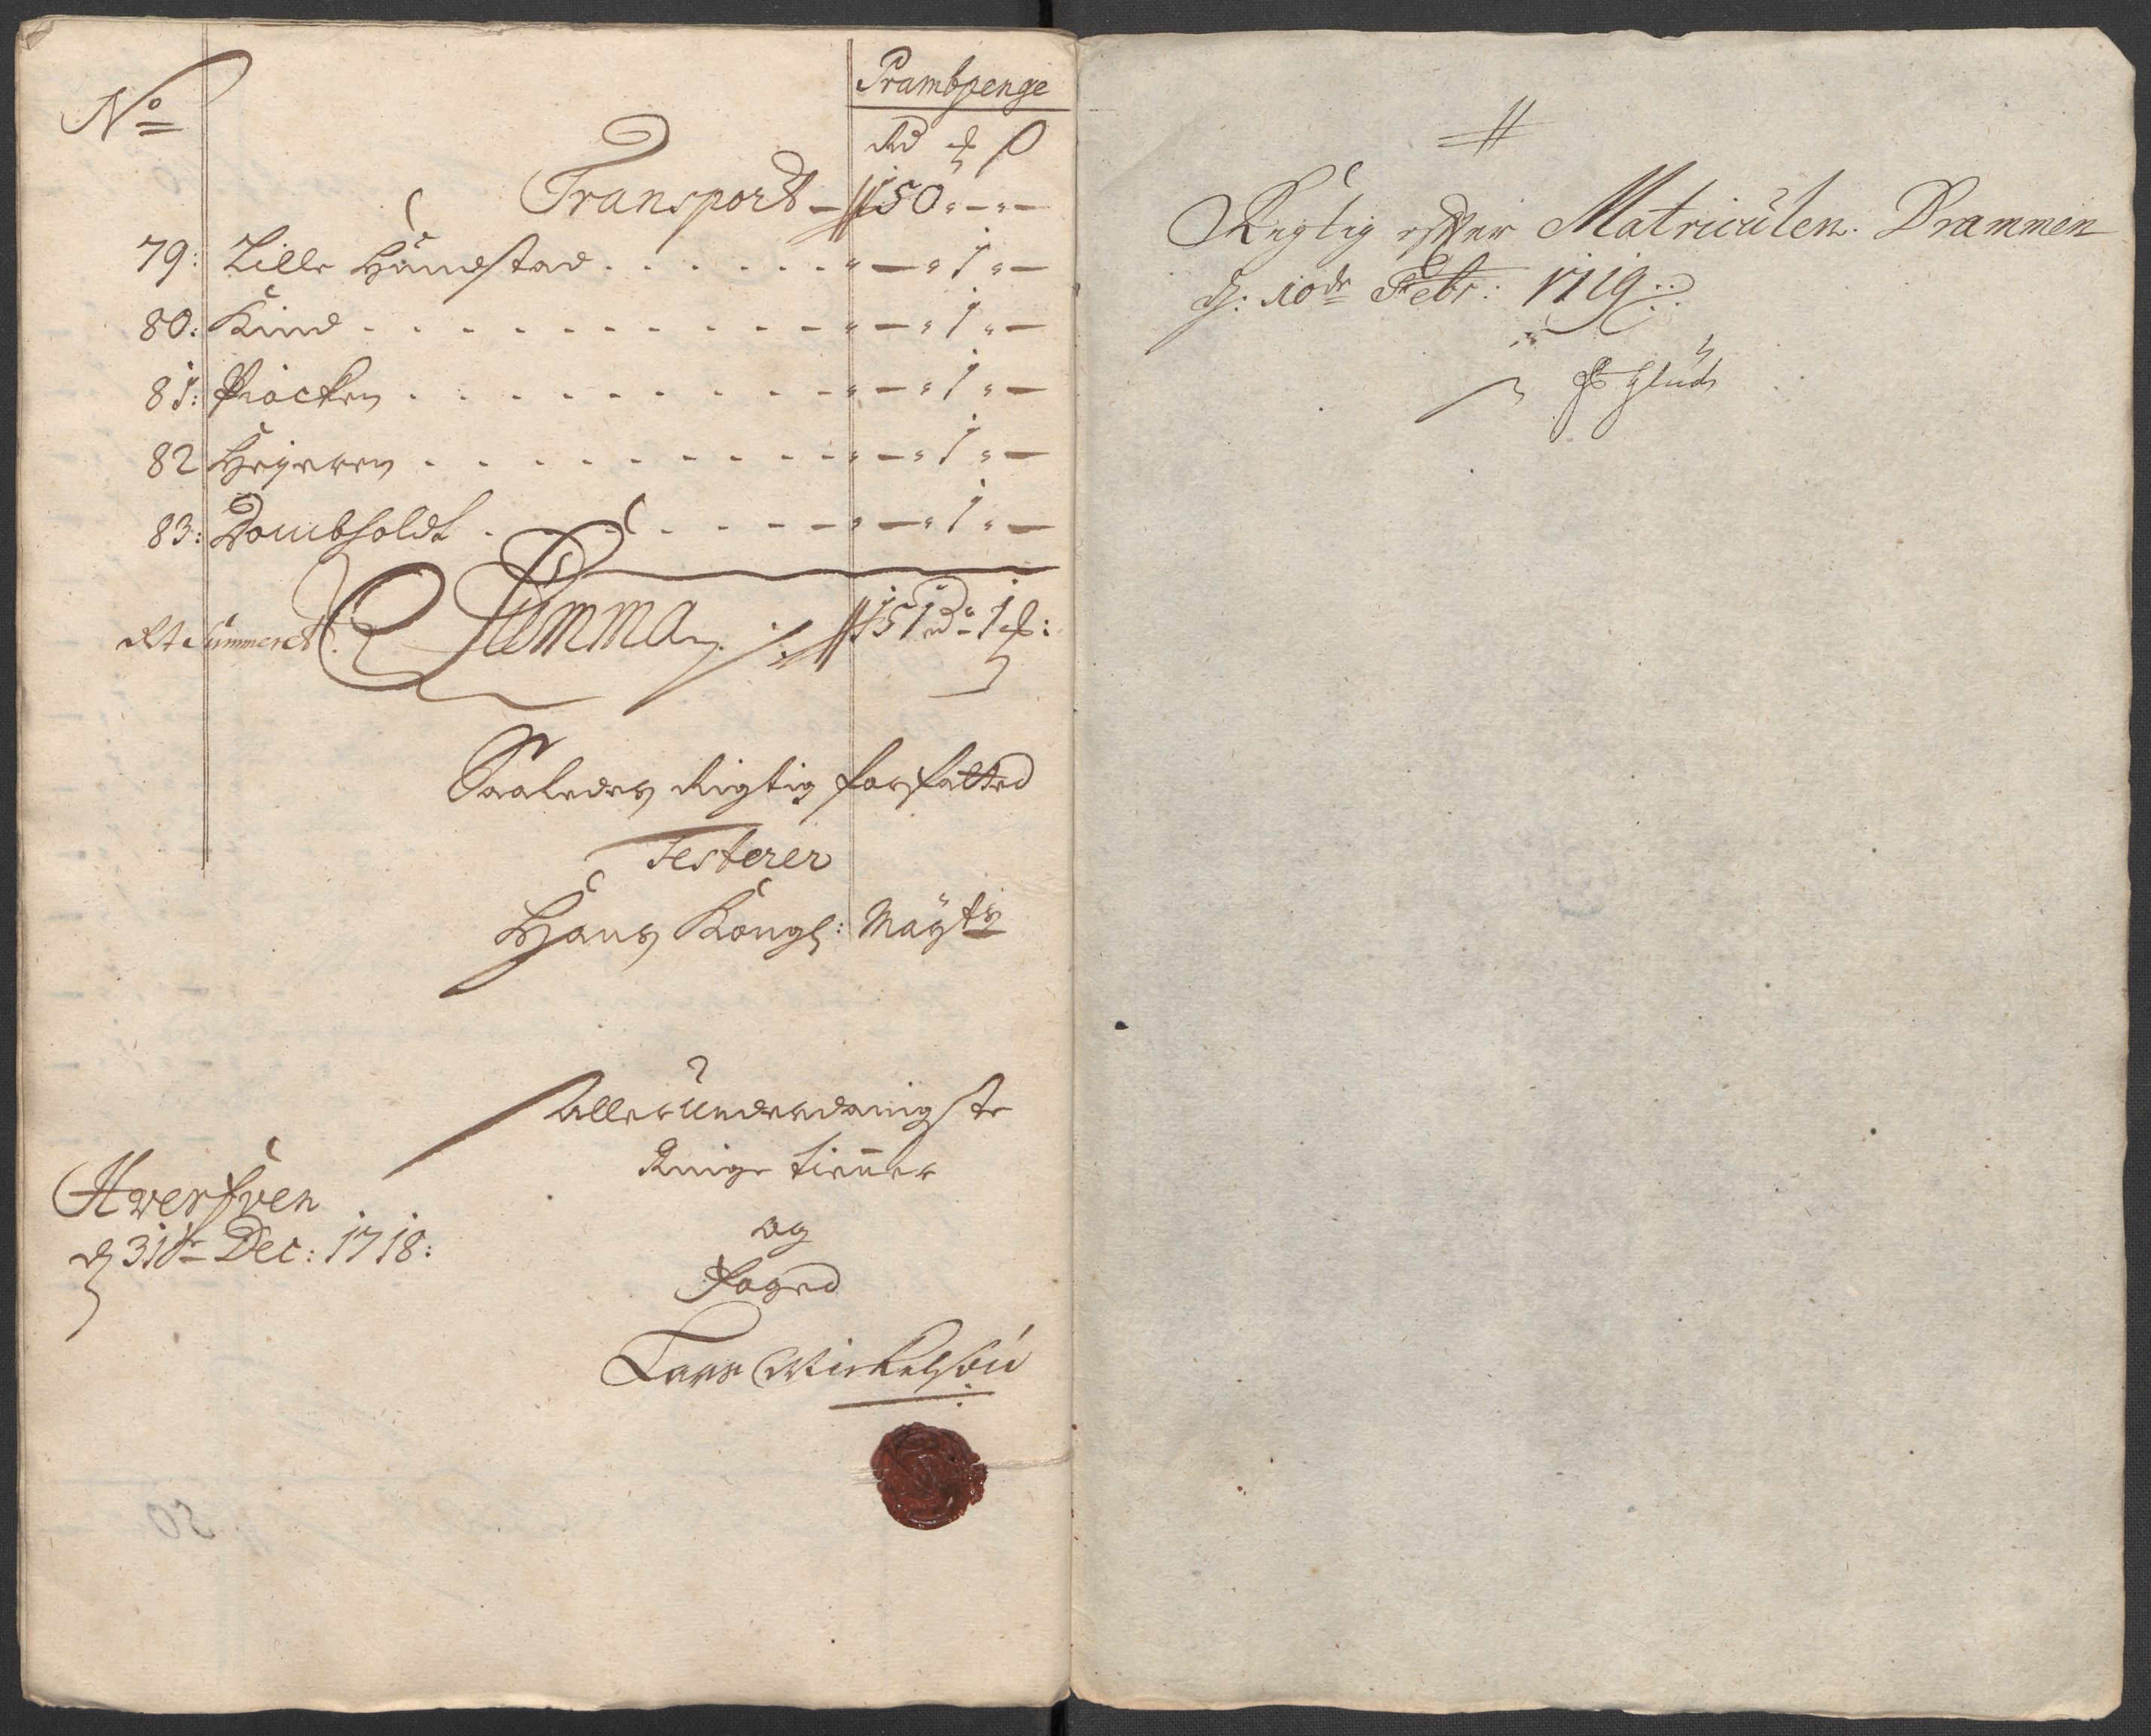 No
Prambpenge
Rd ß
Transport – 150 „ – „ –
79: Lille Hundstad . . . . . . „ – „ 1 „ –
80: Kind . . . . . . . . . „ – „ 1 „ –
81: Kiocken . . . . . . . . „ – „ 1 „ –
82 Hejeren . . . . . . . . „ – „ 1 „ –
83: Dombholdt . . . . . . . „ – „ 1 „ –
Rt Summeret. Summa 151 Rd „ 1
Saaledes Rigtig forfatted
Testerer
Hans Kongl: Mayts
Allerunderdanigste
Ringe tienner
og
Foged
Hverfven
d 31te Dec: 1718:
Lars Michelsøn
Rigtig efter Matriculen. Drammen
d: 10de Febr: 1719